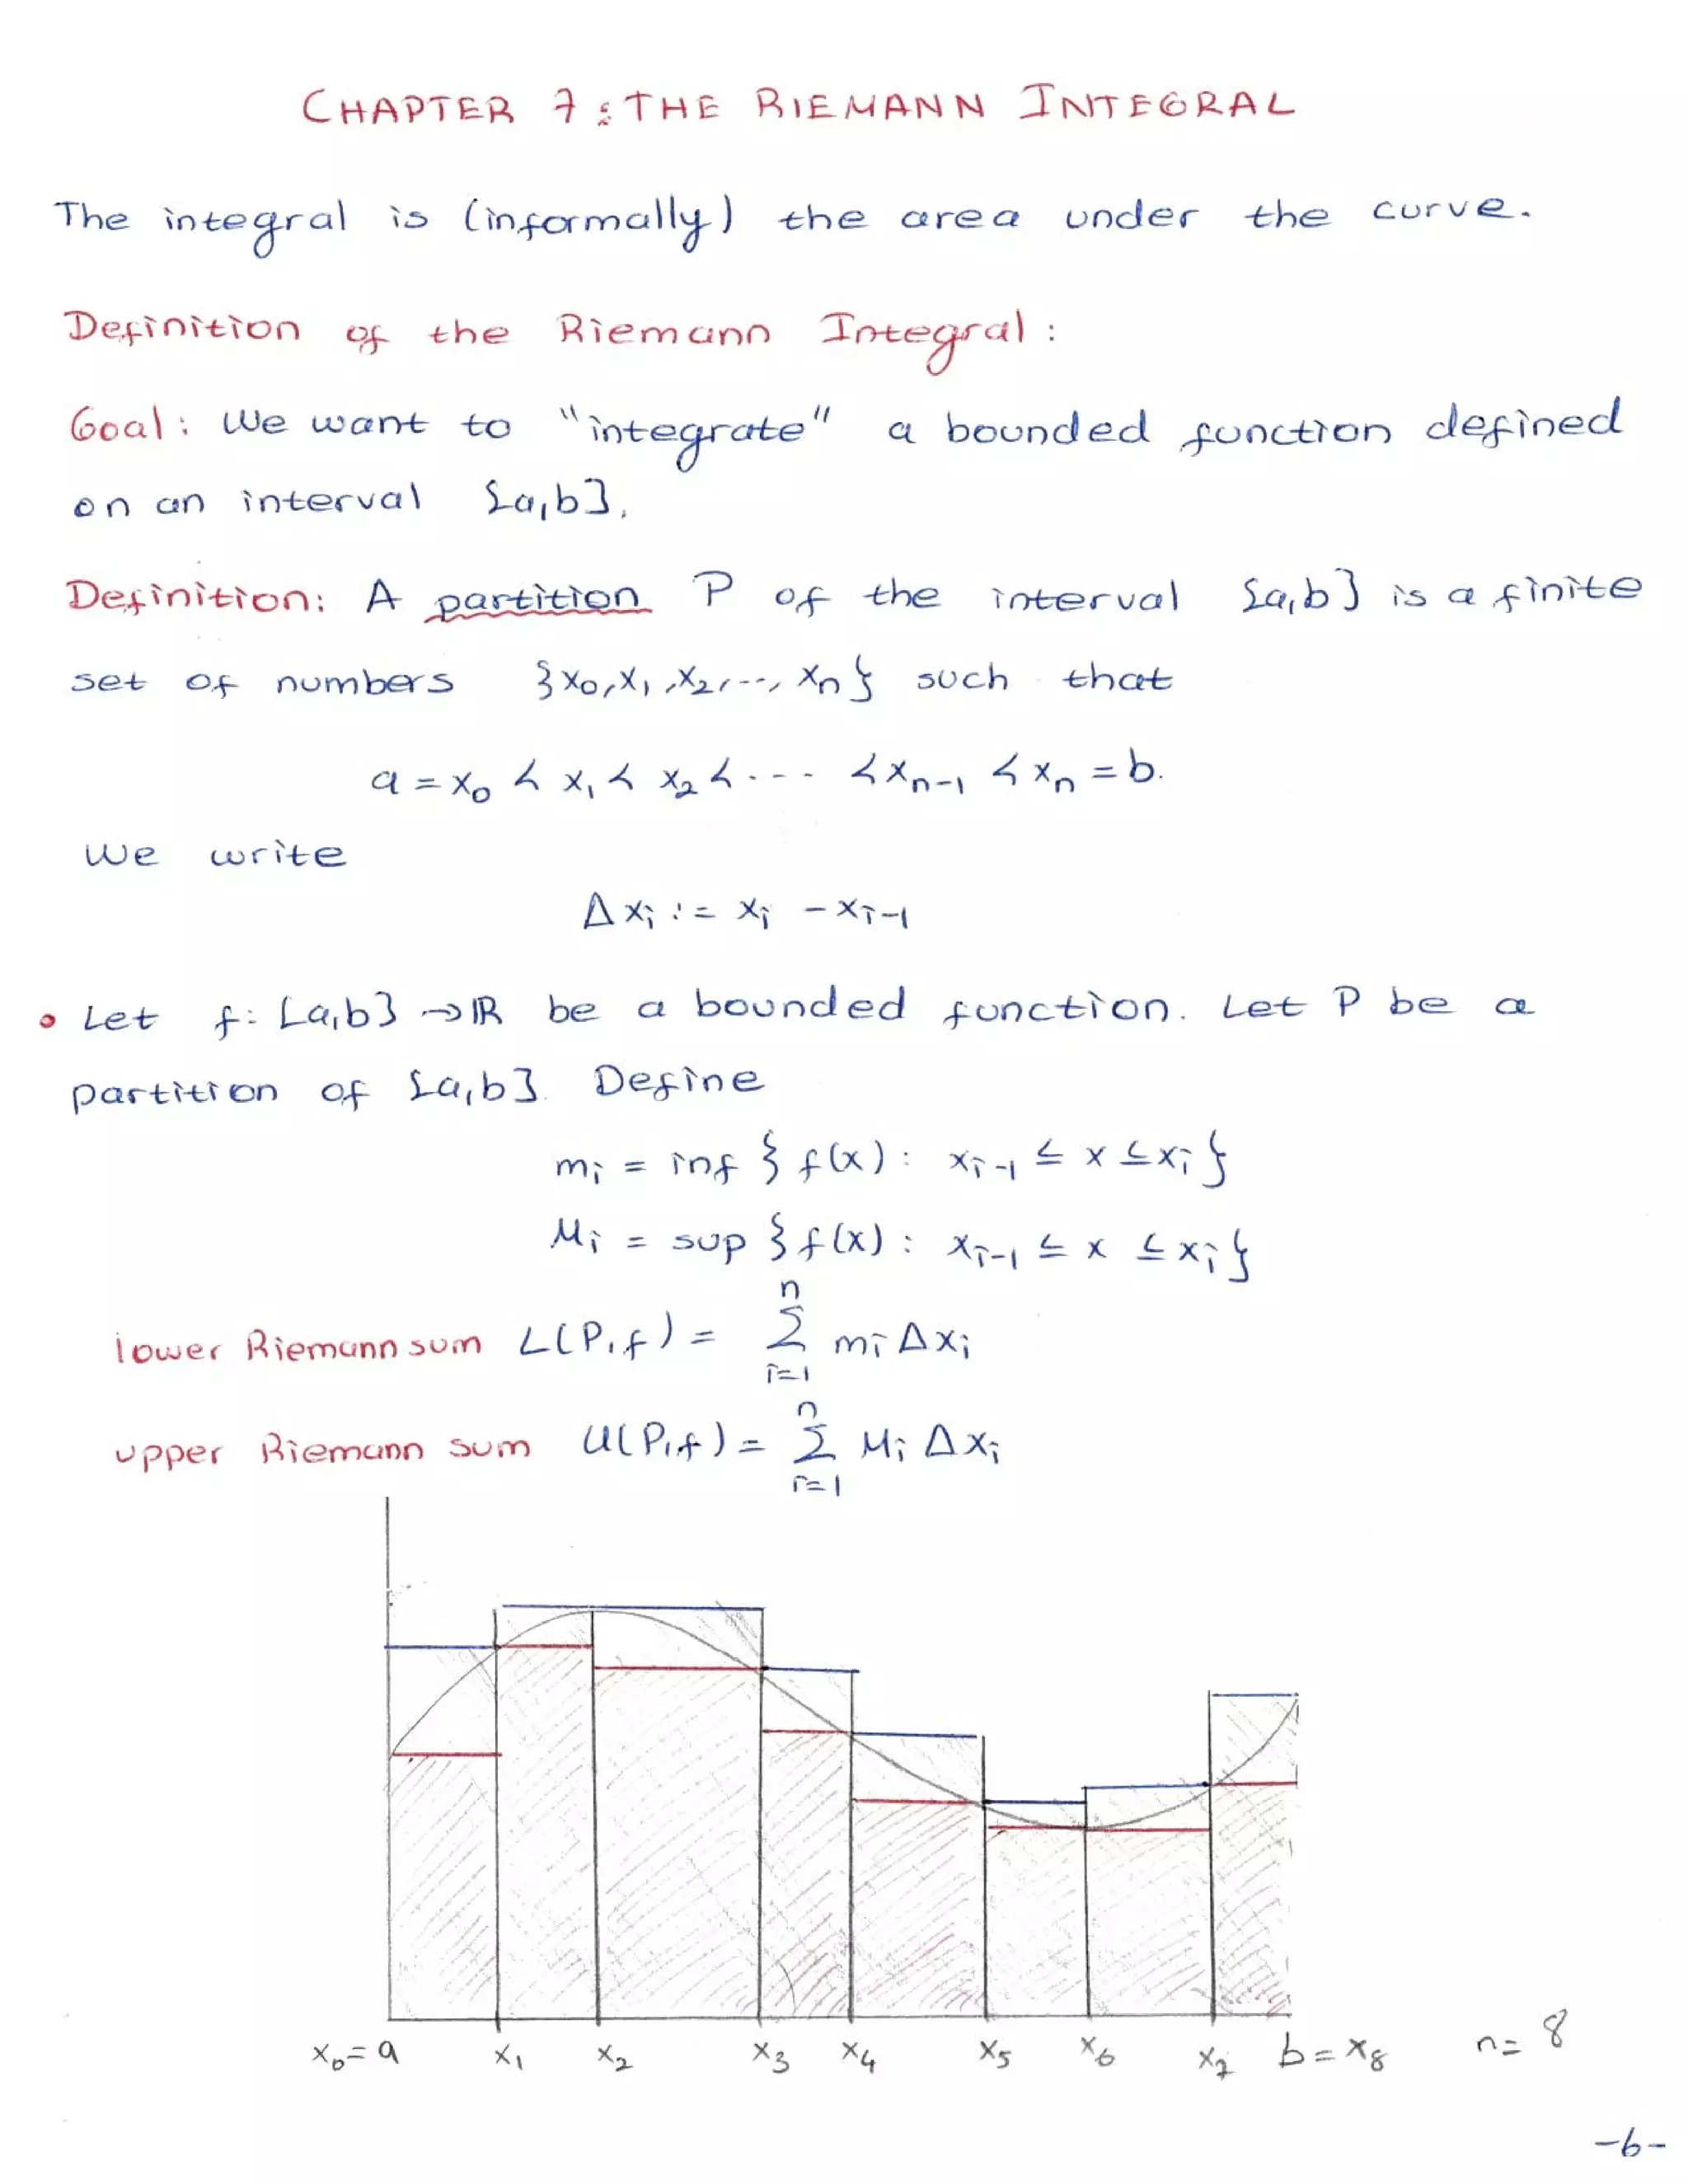 CHAPTER 7: THE RIEMANN INTEGRAL
The integral is (informally) the area under the curve.
Definition of the Riemann Integral:
Goal: We want to "integrate" a bounded function defined
on an interval [a,b].
Definition: A partition P of the interval [a,b] is a finite
set of numbers {x₀,x₁,x₂,...,xₙ} such that
a = x₀ < x₁ < x₂ < .... < xₙ₋₁ < xₙ = b.
We write
Δxᵢ := xᵢ - xᵢ₋₁
• Let f: [a,b] → ℝ be a bounded function. Let P be a
partition of [a,b]. Define
mᵢ = inf { f(x) : xᵢ₋₁ ≤ x ≤ xᵢ }
Mᵢ = sup { f(x) : xᵢ₋₁ ≤ x ≤ xᵢ }
lower Riemann sum L(P,f) = ∑ᵢ₌₁ⁿ mᵢ Δxᵢ
upper Riemann sum U(P,f) = ∑ᵢ₌₁ⁿ Mᵢ Δxᵢ
x₀ = a x₁ x₂ x₃ x₄ x₅ x₆ x₇ b = x₈ n = 8
-6-